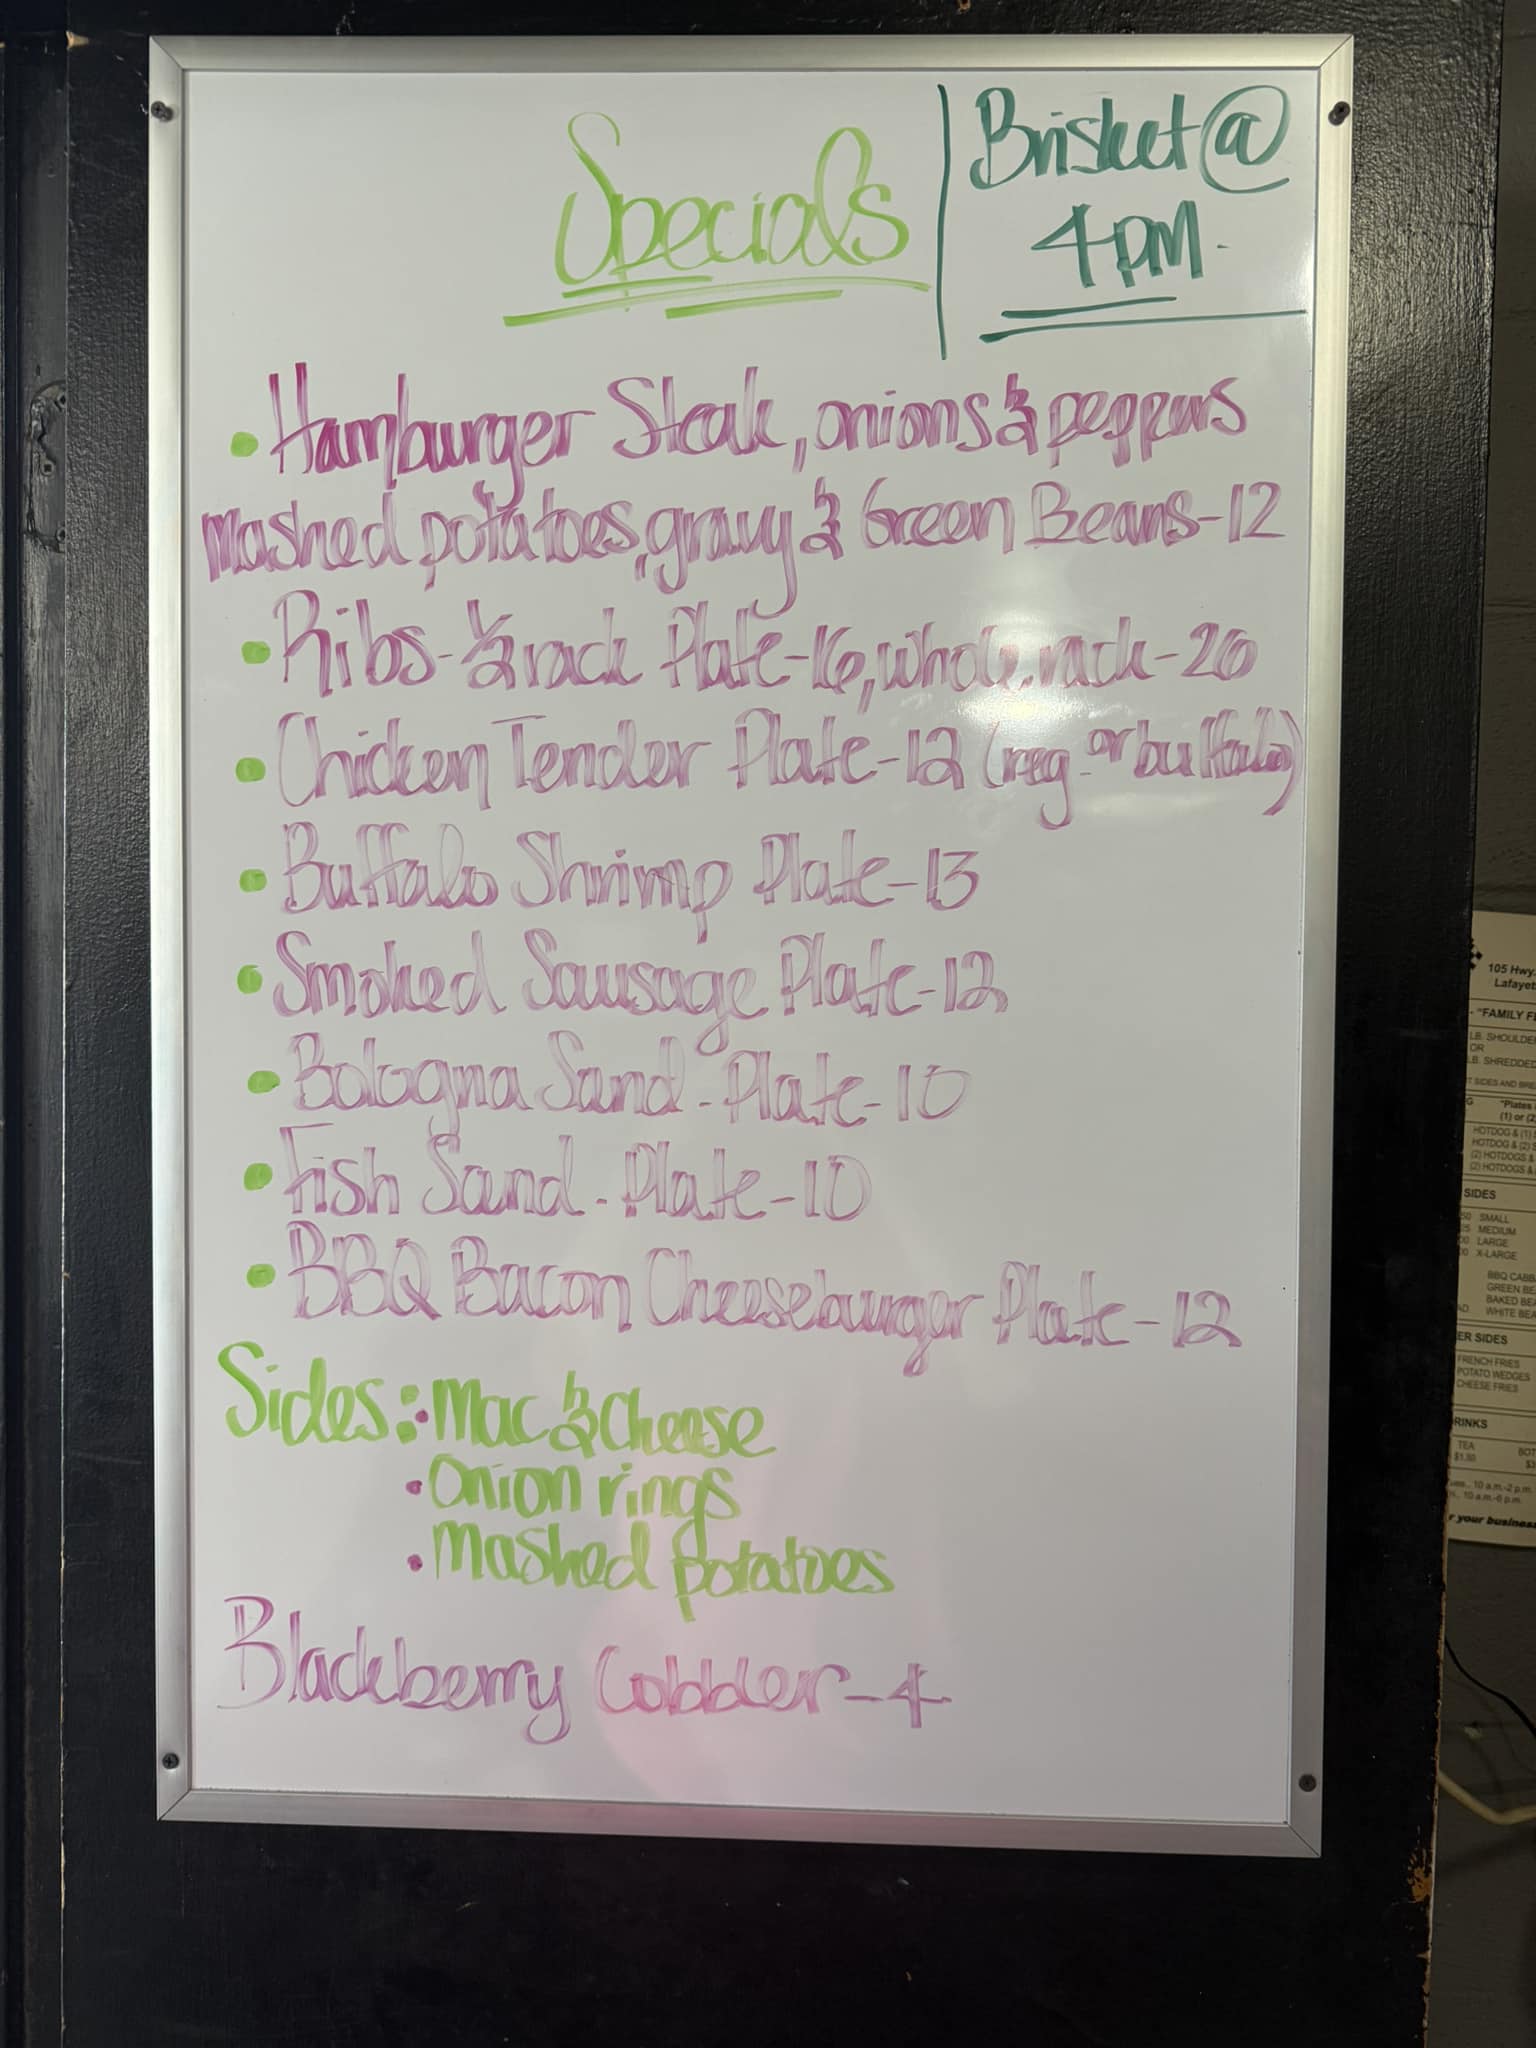 Specials
Brisket @
4 PM.
• Hamburger Steak, onions & peppers
mashed potatoes, gravy & Green Beans-12
• Ribs-½ rack Plate-16, whole rack-26
• Chicken Tender Plate-12 (reg. or buffalo)
• Buffalo Shrimp Plate-13
• Smoked Sausage Plate-12
• Bologna Sand. Plate-10
• Fish Sand. Plate-10
• BBQ Bacon Cheeseburger Plate-12
Sides: • Mac & Cheese
• Onion rings
• Mashed potatoes
Blackberry Cobbler-4
105 Hwy.
"FAMILY
LB.
OR
LB. SHREDDED
"Plates
(1) or (2)
HOTDOG & (1)
HOTDOG & (2)
(2) HOTDOGS &
(2) HOTDOGS &
SIDES
SMALL
MEDIUM
LARGE
X-LARGE
BBQ
GREEN
BAKED
WHITE
SIDES
FRENCH FRIES
POTATO WEDGES
CHEESE FRIES
TEA
$1.50
10 a.m.-2 p.m.
10 a.m.-6 p.m.
your business